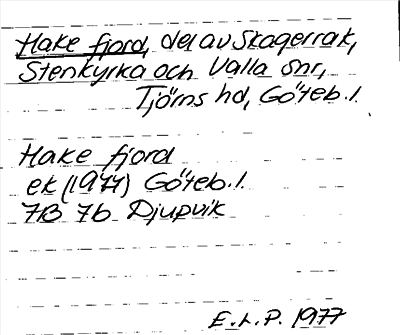 Hake fjord, del av Skagerrak,
Stenkyrka och Valla snr,
Tjörns hd, Göteb. l.
Hake fjord
ek (1977) Göteb. l.
7B 7b Djupvik
E. L. P. 1977